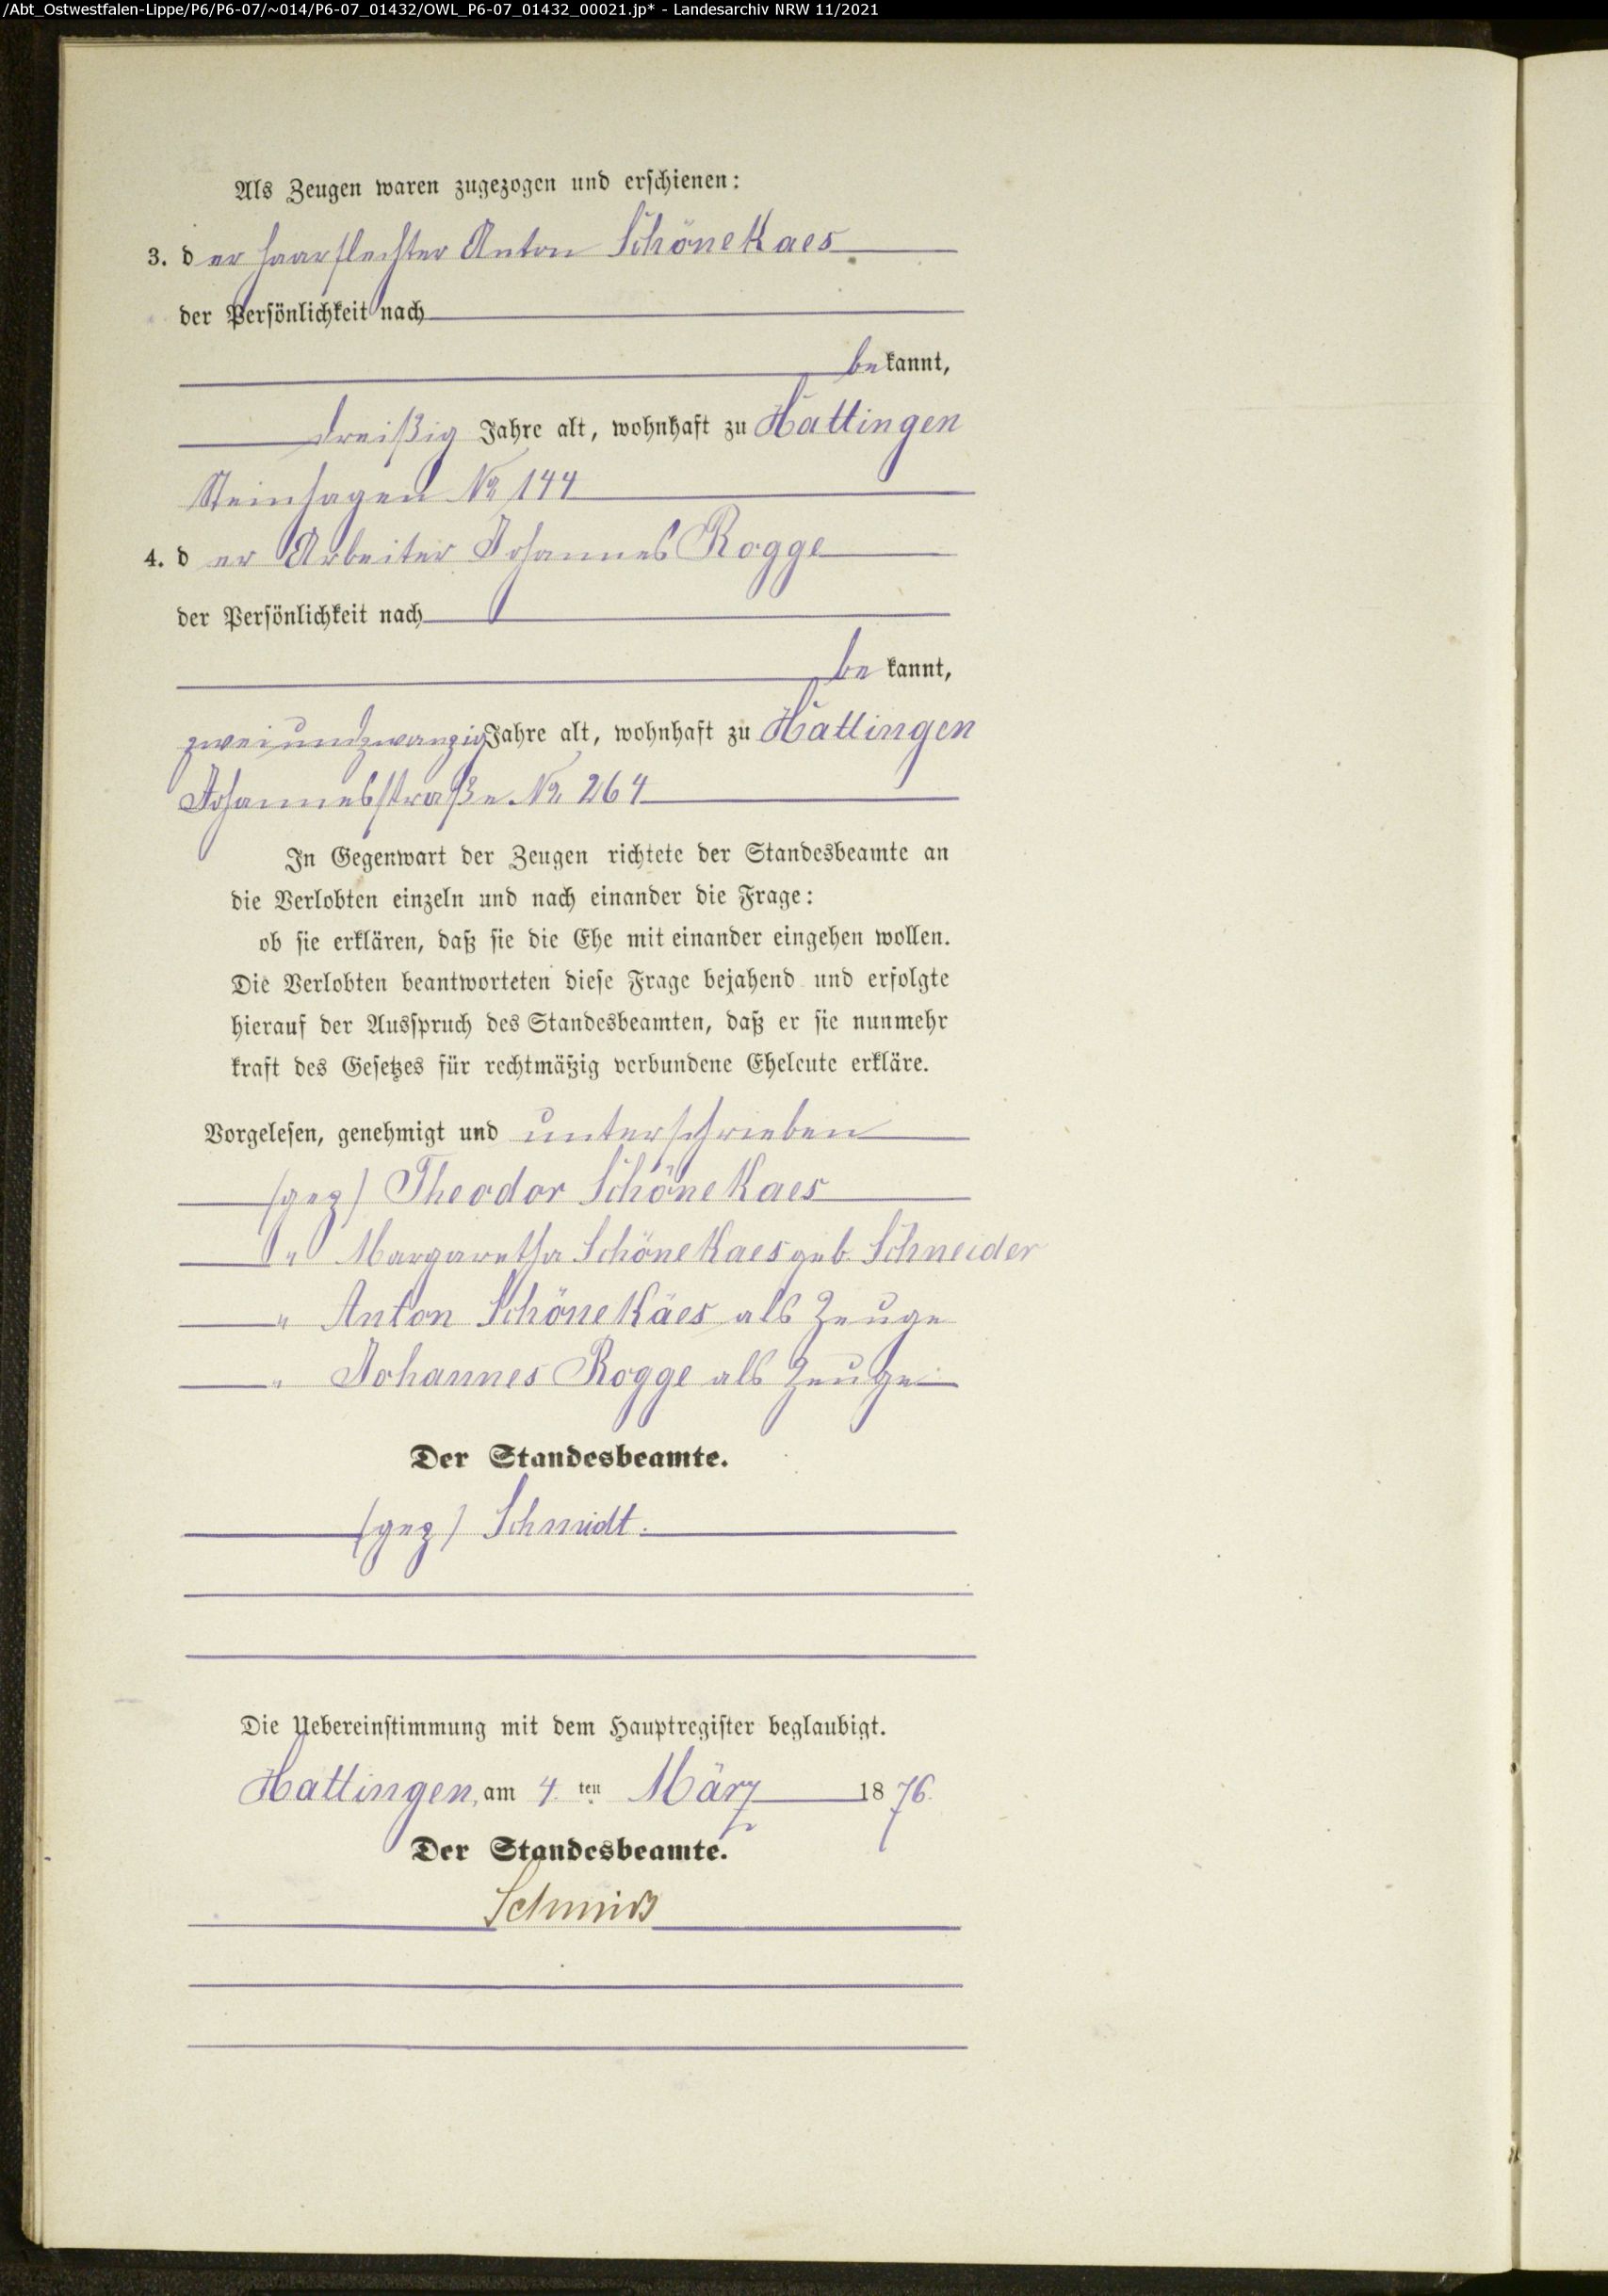 /Abt_Ostwestfalen-Lippe/P6/P6-07/~014/P6-07_01432/OWL_P6-07_01432_00021.jp* - Landesarchiv NRW 11/2021
Als Zeugen waren zugezogen und erschienen:
3. der Haarflechter Anton Schönekaes
der Persönlichkeit nach
bekannt,
dreißig Jahre alt, wohnhaft zu Hattingen
Steinhagen No 144
4. der Arbeiter Johannes Rogge
der Persönlichkeit nach
bekannt,
zweiundzwanzig Jahre alt, wohnhaft zu Hattingen
Johannesstraße No 264
In Gegenwart der Zeugen richtete der Standesbeamte an
die Verlobten einzeln und nach einander die Frage:
ob sie erklären, daß sie die Ehe mit einander eingehen wollen.
Die Verlobten beantworteten diese Frage bejahend und erfolgte
hierauf der Ausspruch des Standesbeamten, daß er sie nunmehr
kraft des Gesetzes für rechtmäßig verbundene Eheleute erkläre.
Vorgelesen, genehmigt und unterschrieben
(gez) Theodor Schönekaes
" Margaretha Schönekaes geb. Schneider
" Anton Schönekäes als Zeuge
" Johannes Rogge als Zeuge
Der Standesbeamte.
(gez) Schmidt.
Die Uebereinstimmung mit dem Hauptregister beglaubigt.
Hattingen, am 4. ten März 1876.
Der Standesbeamte.
Schmidt